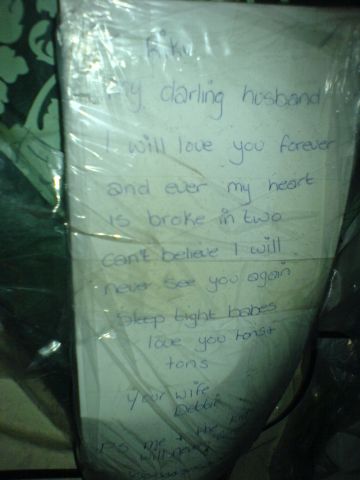 Riku
My darling husband
I will love you forever
and ever my heart
is broke in two
can't believe I will
never see you again
Sleep tight babes
love you tons+
tons
Your wife
Debbie
PS me + the
will